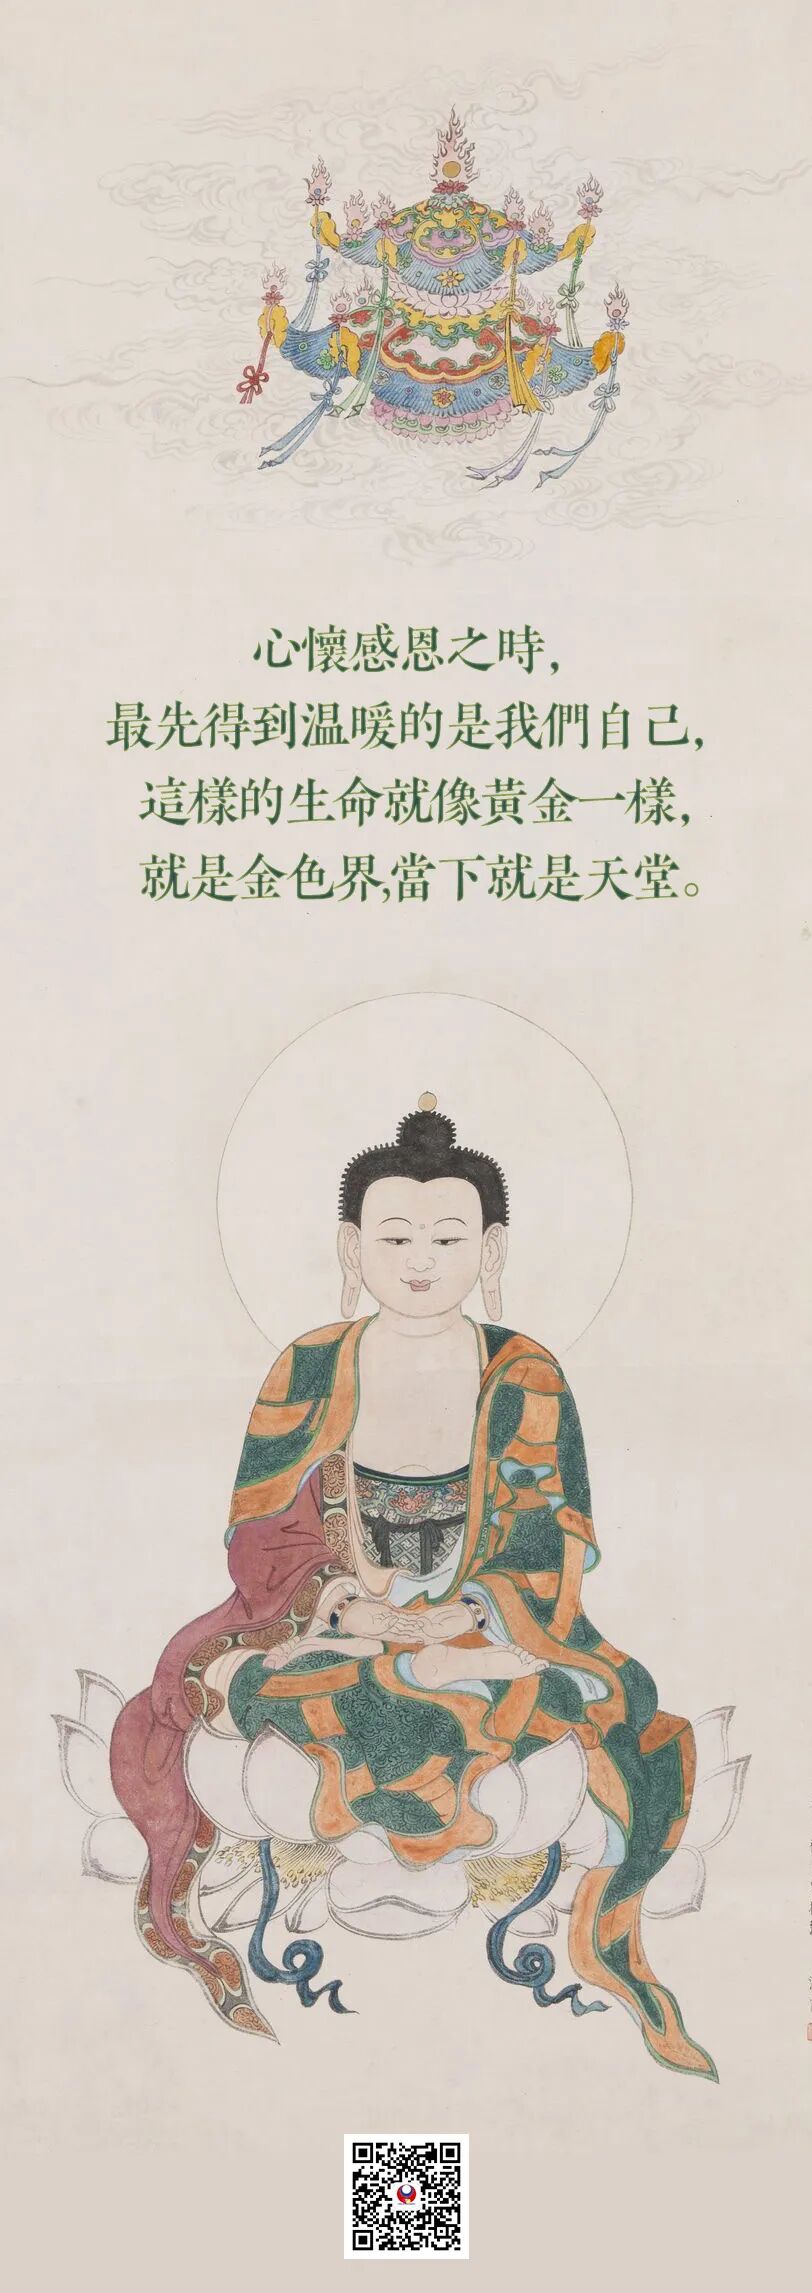 心懷感恩之時，
最先得到温暖的是我們自己，
這樣的生命就像黃金一樣，
就是金色界,當下就是天堂。